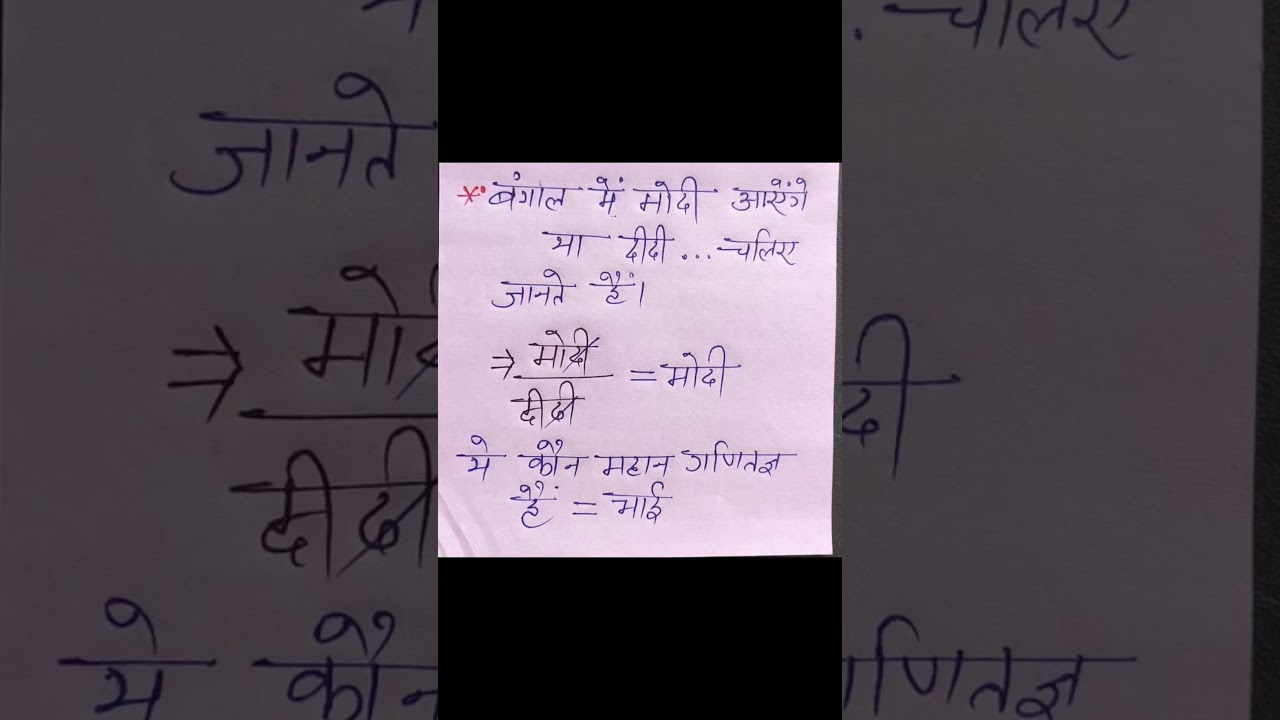 * बंगाल में मोदी आएंगे
या दीदी ... चलिए
जानते हैं।
⇒ मोदी
दीदी
= मोदी
ये कौन महान गणितज्ञ
हैं = भाई